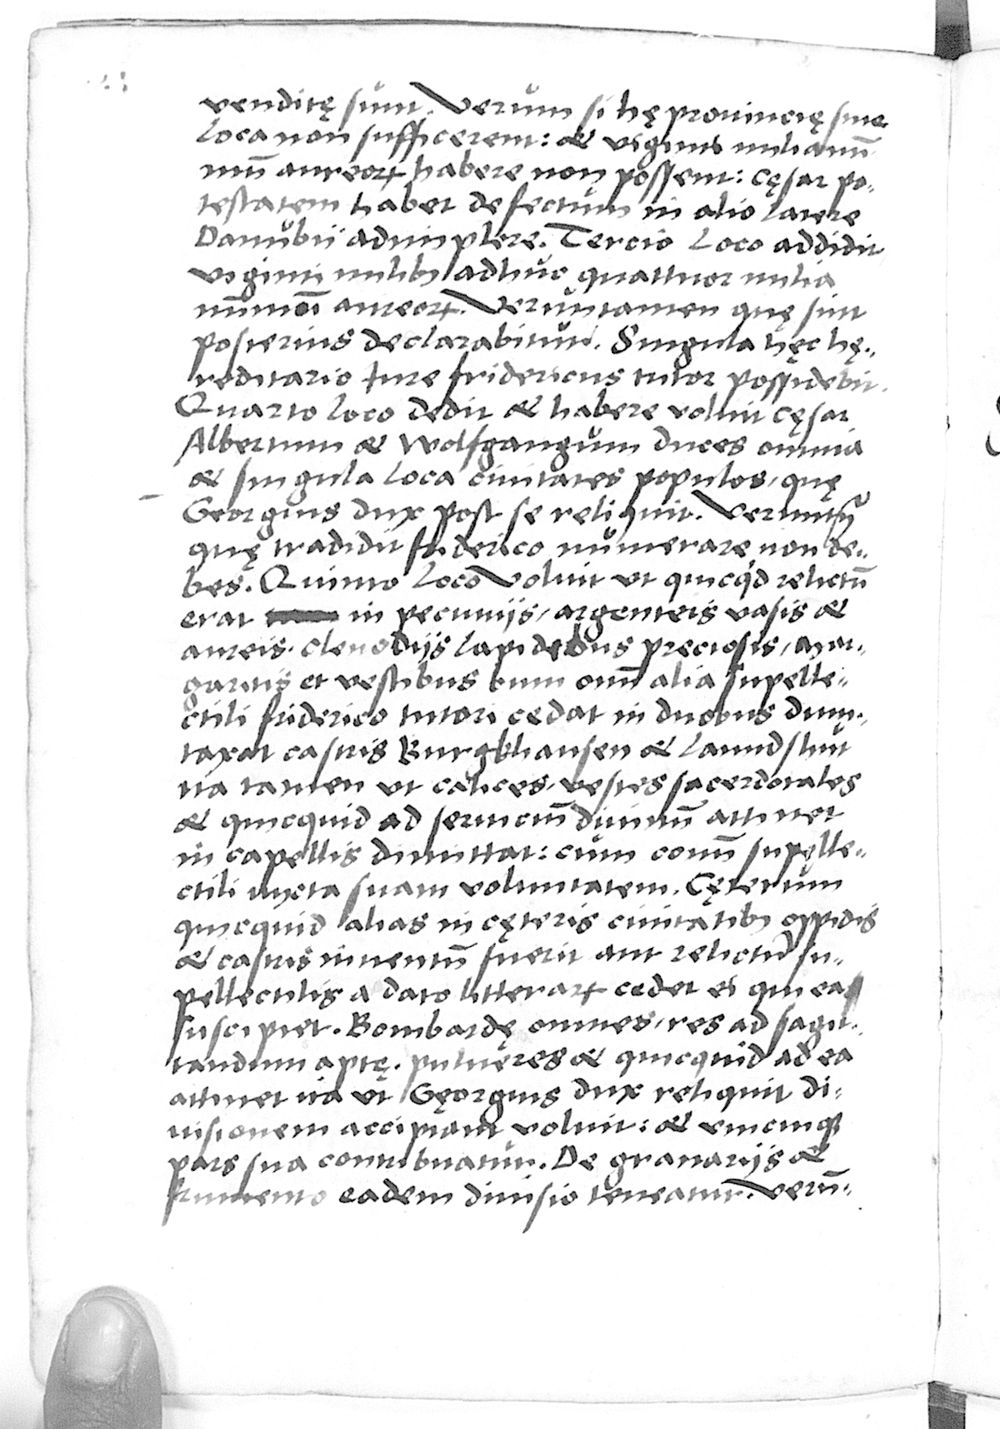 venditę sunt. Verum si hę prouincię siue
loca non sufficerent: & viginti miliariū
mū aureoꝝ habere non possent: cęsar po-
testatem habet defectum in alio latere
Danubii adimplere. Tercio loco addidit
viginti milibꝫ adhuc quattuor milia
nūmoꝝ aureoꝝ. Veruntamen quę sint
posterius declarabitur. Singula hęc hę-
reditario iure fridericus tutor possidebit.
Quarto loco dedit & habere voluit cęsar
Albertum & Wolfgangum duces omnia
& singula loca ciuitates populos, quę
Georgius dux post se reliquit. Verumtn̄
quę tradidit friderico numerare non de-
bes. Quinto loco voluit vt quicqd relictū
erat in pecunijs, argenteis vasis &
aureis. clenodijs lapidebus preciosis, mar-
garitis et vestibus cum omī alia supelle-
ctili friderico tutori cedat in duobus dum-
taxat castris Burgkhausen & Lanndshut
ita tamen vt calices, vestes sacerdotales
& quicquid ad seruiciū diuinū attinet
in capellis dimittat: cum comū supelle-
ctili iuxta suam voluntatem. Cęterum
quicquid alias in cęteris ciuitatibꝫ oppidis
& castris inuentū fuerit aut relictū su-
pellectilis a dato litteraꝝ cedet ei qui ea
suscipiet. Bombardę omnes, res ad sagit-
tandum aptę. pulueres & quicquid ad ea
attinet ita vt Georgius dux reliquit di-
uisionem accipiant voluit: & vnicuiqꝫ
pars sua contribuatur. De granarijs &
frumento eadem diuisio teneatur. Verū-